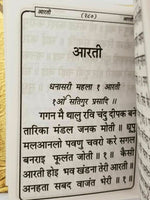 आरती (९८०) आरती
आरती
धनासरी महला १ आरती
१ओं सतिगुर प्रसादि ॥
गगन मै थालु रवि चंदु दीपक बने
तारिका मंडल जनक मोती ॥ धूपु
मलआनलो पवणु चवरो करे सगल
बनराइ फूलंत जोती ॥ १ ॥ कैसी
आरती होइ भव खंडना तेरी आरती ॥
अनहता सबद वाजंत भेरी ॥ १ ॥